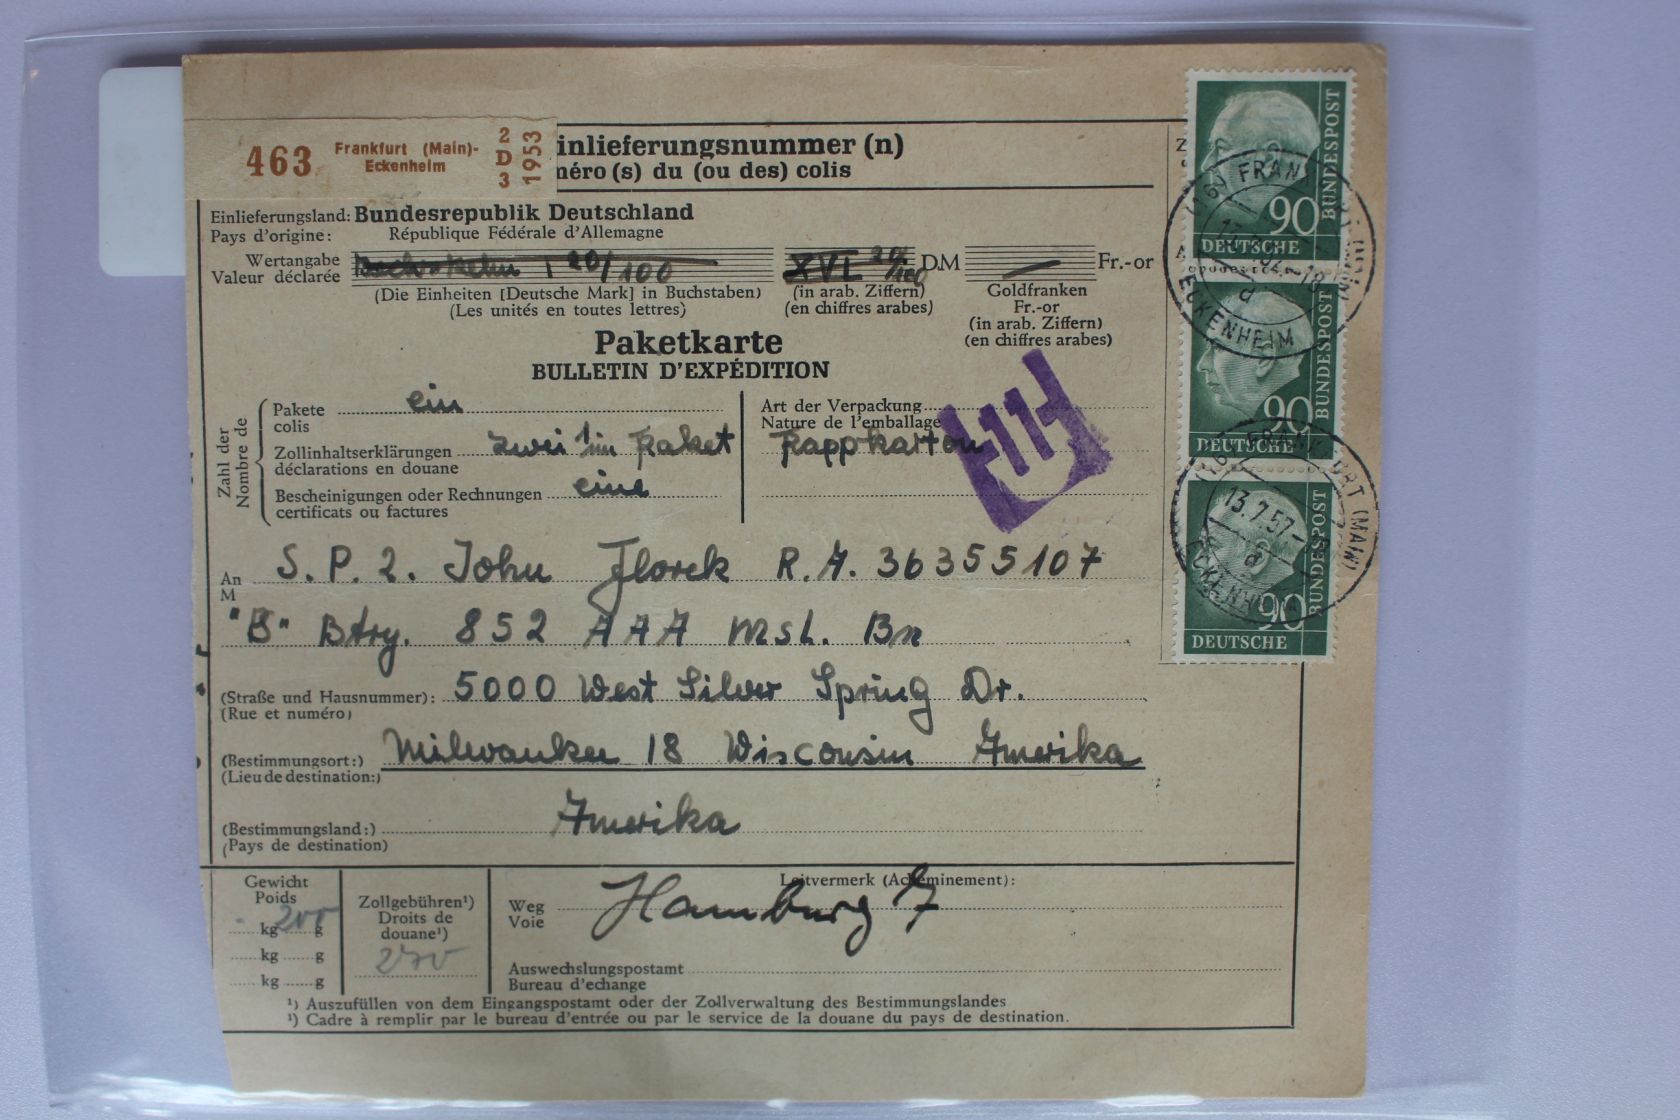 463 Frankfurt (Main)-Eckenheim 2 D 3 1953
inlieferungsnummer (n)
méro (s) du (ou des) colis
Einlieferungsland: Bundesrepublik Deutschland
Pays d'origine: République Fédérale d'Allemagne
Wertangabe
Valeur déclarée 20/100 XVI 20/100 DM — Fr.-or
(Die Einheiten [Deutsche Mark] in Buchstaben)
(Les unités en toutes lettres)
(in arab. Ziffern)
(en chiffres arabes)
Goldfranken
Fr.-or
(in arab. Ziffern)
(en chiffres arabes)
Paketkarte
BULLETIN D'EXPÉDITION
Zahl der
Nombre de
Pakete ein
colis
Zollinhaltserklärungen zwei 1 im Paket
déclarations en douane
Bescheinigungen oder Rechnungen eine
certificats ou factures
Art der Verpackung
Nature de l'emballage
Pappkarton
-111-
An S. P. 2. John Florek R. A. 36355107
M
"B" Btry. 852 AAA Msl. Bn
(Straße und Hausnummer): 5000 West Silver Spring Dr.
(Rue et numéro)
(Bestimmungsort:) Milwaukee 18 Wisconsin Amerika
(Lieu de destination:)
(Bestimmungsland:) Amerika
(Pays de destination)
Gewicht
Poids
kg 200 g
kg g
kg g
Zollgebühren¹)
Droits de
douane¹)
270
Leitvermerk (Acheminement):
Weg
Voie Hamburg 7
Auswechslungspostamt
Bureau d'echange
¹) Auszufüllen von dem Eingangspostamt oder der Zollverwaltung des Bestimmungslandes
¹) Cadre à remplir par le bureau d'entrée ou par le service de la douane du pays de destination.
90
DEUTSCHE
BUNDESPOST
90
DEUTSCHE
BUNDESPOST
90
DEUTSCHE
BUNDESPOST
ECKENHEIM
d
13.7.57